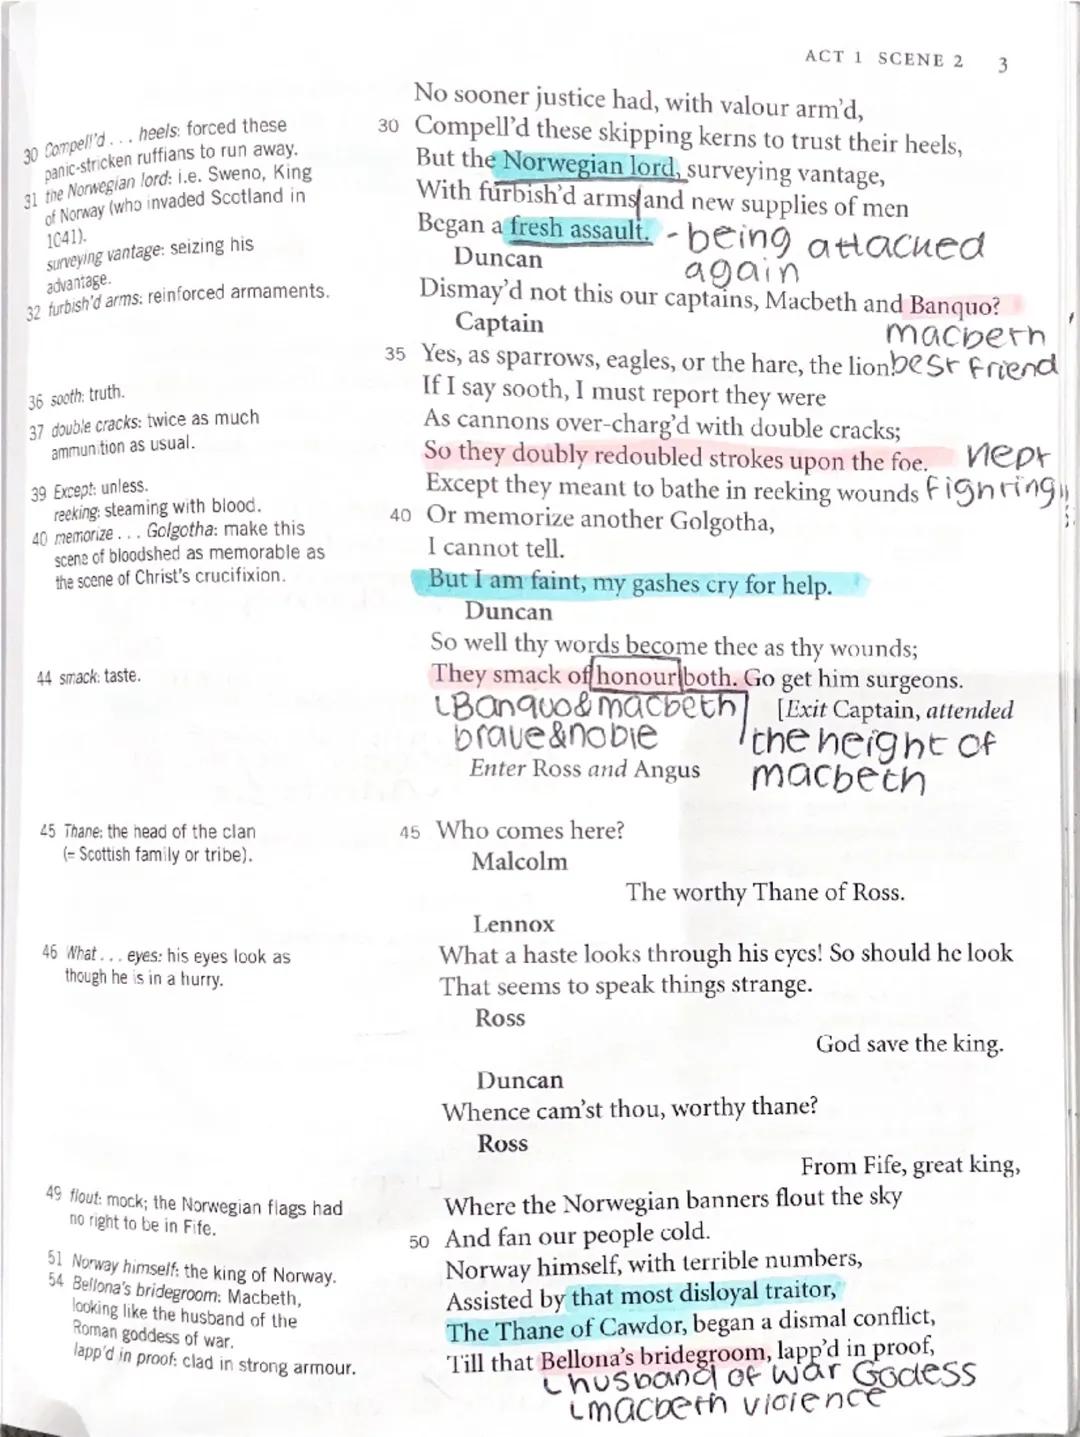 ACT 1 SCENE 2 3
No sooner justice had, with valour arm'd,
30 Compell'd these skipping kerns to trust their heels,
But the Norwegian lord, surveying vantage,
With furbish'd arms and new supplies of men
Began a fresh assault. - being attacked
again
Duncan
Dismay'd not this our captains, Macbeth and Banquo?
macbeth
Captain
35 Yes, as sparrows, eagles, or the hare, the lion. best friend
If I say sooth, I must report they were
As cannons over-charg'd with double cracks;
So they doubly redoubled strokes upon the foe. kept
Except they meant to bathe in reeking wounds fighting
40 Or memorize another Golgotha,
I cannot tell.
But I am faint, my gashes cry for help.
Duncan
So well thy words become thee as thy wounds;
They smack of honour both. Go get him surgeons.
[Exit Captain, attended
Banquo & macbeth
brave & noble
the height of
macbeth
Enter Ross and Angus
45 Who comes here?
Malcolm
The worthy Thane of Ross.
Lennox
What a haste looks through his eyes! So should he look
That seems to speak things strange.
Ross
God save the king.
Duncan
Whence cam'st thou, worthy thane?
Ross
From Fife, great king,
Where the Norwegian banners flout the sky
50 And fan our people cold.
Norway himself, with terrible numbers,
Assisted by that most disloyal traitor,
The Thane of Cawdor, began a dismal conflict,
Till that Bellona's bridegroom, lapp'd in proof,
husband of war Godess
macbeth violence
30 Compell'd . . . heels: forced these
panic-stricken ruffians to run away.
31 the Norwegian lord: i.e. Sweno, King
of Norway (who invaded Scotland in
1041).
surveying vantage: seizing his
advantage.
32 furbish'd arms: reinforced armaments.
36 sooth: truth.
37 double cracks: twice as much
ammunition as usual.
39 Except: unless.
reeking: steaming with blood.
40 memorize . . . Golgotha: make this
scene of bloodshed as memorable as
the scene of Christ's crucifixion.
44 smack: taste.
45 Thane: the head of the clan
(= Scottish family or tribe).
46 What . . . eyes: his eyes look as
though he is in a hurry.
49 flout: mock; the Norwegian flags had
no right to be in Fife.
51 Norway himself: the king of Norway.
54 Bellona's bridegroom: Macbeth,
looking like the husband of the
Roman goddess of war.
lapp'd in proof: clad in strong armour.